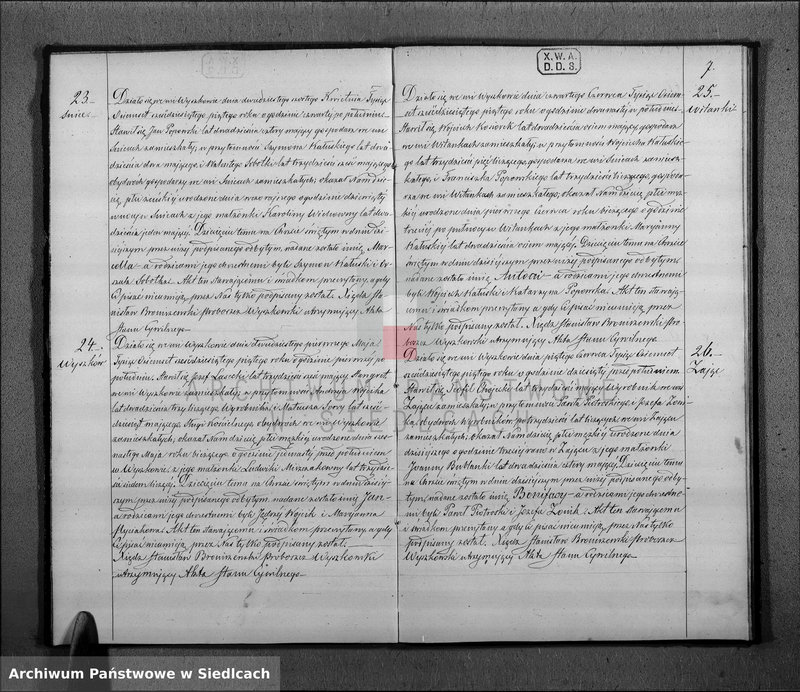 X.W.A.
D.D.S.
7.
23.
Działo się we wsi Wyszkowie dnia dwudziestego szóstego Kwietnia Tysiąc
Ośmset sześdziesiątego piątego roku o godzinie czwartej po południu
Stawił się Jan Poporski lat dwadzieścia cztery mający gospodarz we wsi
zamieszkały, w przytomności Szymona Katuskiego lat dwa-
dzieścia dwa mającego, i Walentego Sobotki lat trzydzieści sześć mającego
obydwóch gospodarzy we wsi zamieszkałych, okazał Nam dziecię
płci żeńskiej urodzone dnia wczorajszego o godzinie dziesiątej
z jego małżonki Karoliny lat dwa-
dzieścia jeden mającej. Dziecięciu temu na Chrzcie świętym w dniu dzi-
siejszym przez niżej podpisanego odbytym, nadane zostało imię Mar-
cella a rodzicami jego chrzestnemi byli Szymon Katuski i Ur-
szula Sobotka. Akt ten stawającemu i świadkom przeczytany, a gdy
Ci pisać nieumieją, przez Nas tylko podpisany został. Xiądz Sta-
nisław Broniszewski Proboszcz Wyszkowski utrzymujący Akta
Stanu Cywilnego
24.
Wyszków
Działo się we wsi Wyszkowie dnia pierwszego Maja
Tysiąc Ośmset sześdziesiątego piątego roku o godzinie pierwszej po
południu. Stawił się Józef lat trzydzieści sześć mający
we wsi Wyszkowie zamieszkały, w przytomności Andrzeja Wójcika
lat dwadzieścia trzy liczącego, Wyrobnika, i Mateusza lat sześć-
dziesiąt mającego Sługi Kościelnego obydwóch we wsi Wyszkowie
zamieszkałych, okazał Nam dziecię płci męzkiej urodzone dnia
Maja roku bieżącego o godzinie przed południem
w Wyszkowie z jego małżonki Ludwiki lat trzydzie-
ści siedm liczącej. Dziecięciu temu na Chrzcie świętym w dniu dzisiej-
szym przez niżej podpisanego odbytym nadane zostało imię Jan
a rodzicami jego chrzestnemi byli Jędrzej Wójcik i Maryanna
Akt ten stawającemu i świadkom przeczytany a gdy
Ci pisać nieumieją, przez Nas tylko podpisany został.
Xiądz Stanisław Broniszewski Proboszcz Wyszkowski
utrzymujący Akta Stanu Cywilnego
25.
Witanki
Działo się we wsi Wyszkowie dnia czwartego Czerwca Tysiąc Ośm-
set sześdziesiątego piątego roku o godzinie dwunastej w południe
Stawił się Wojciech lat dwadzieścia ośm mający, gospodarz
we wsi Witankach zamieszkały, w przytomności Wojciecha Katuskie-
go lat trzydzieści pięć liczącego, gospodarza we wsi zamiesz-
kałego, i Franciszka Poporskiego lat trzydzieści liczącego, gospoda-
rza we wsi Witankach zamieszkałego, okazał Nam dziecię płci męz-
kiej urodzone dnia pierwszego Czerwca roku bieżącego o godzinie
trzeciej po północy w Witankach z jego małżonki Maryanny
Katuskiej lat dwadzieścia ośm mającej. Dziecięciu temu na Chrzcie
świętym w dniu dzisiejszym przez niżej podpisanego odbytym
nadane zostało imię Antoni a rodzicami jego chrzestnemi
byli Wojciech Katuski i Katarzyna Poporska. Akt ten stawają-
cemu i świadkom przeczytany a gdy Ci pisać nieumieją, przez
Nas tylko podpisany został. Xiądz Stanisław Broniszewski Pro-
boszcz Wyszkowski utrzymujący Akta Stanu Cywilnego.
26.
Zające
Działo się we wsi Wyszkowie dnia piątego Czerwca Tysiąc Ośmset
sześdziesiątego piątego roku o godzinie dziesiątej przed południem
Stawił się Teofil lat trzydzieści mający Wyrobnik we wsi
Zającu zamieszkały, w przytomności Pawła Piotroskiego, i Józefa Żoni-
ka obydwóch Wyrobników, po trzydzieści lat liczących we wsi Zającu
zamieszkałych, okazał Nam dziecię płci męzkiej urodzone dnia
dzisiejszego o godzinie trzeciej rano w Zającu z jego małżonki
Joanny lat dwadzieścia cztery mającej. Dziecięciu temu
na Chrzcie świętym w dniu dzisiejszym przez niżej podpisanego odby-
tym, nadane zostało imię Bonifacy a rodzicami jego chrzestne-
mi byli Paweł Piotroski i Józefa Żonik. Akt ten stawającemu
i świadkom przeczytany a gdy Ci pisać nieumieją, przez Nas tylko
podpisany został. Xiądz Stanisław Broniszewski Proboszcz
Wyszkowski utrzymujący Akta Stanu Cywilnego
ARCHIWUM PAŃSTWOWE
W SIEDLCACH
Archiwum Państwowe w Siedlcach